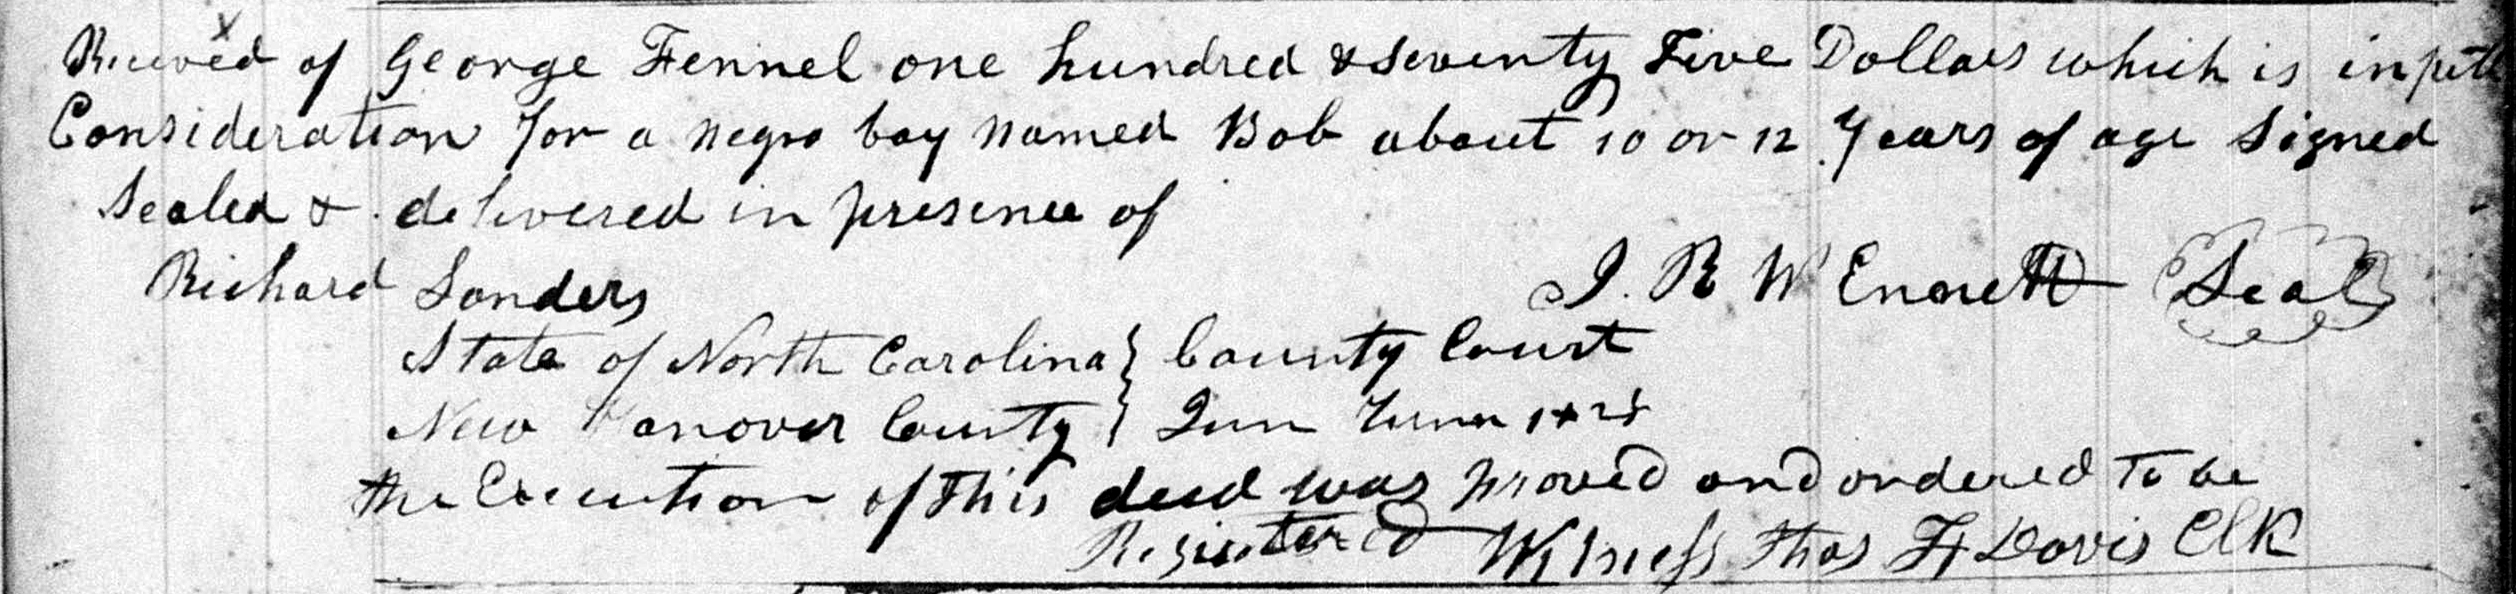 Received of George Fennel one hundred & seventy Five Dollars which is in
Consideration for a negro boy named Bob about 10 or 12 Years of age Signed
Sealed & delivered in presence of
Richard Sanders J. R W Ennett Seal
State of North Carolina } County Court
New Hanover County }
the Execution of this deed was proved and ordered to be
Registered Witness Thos F Davis Clk